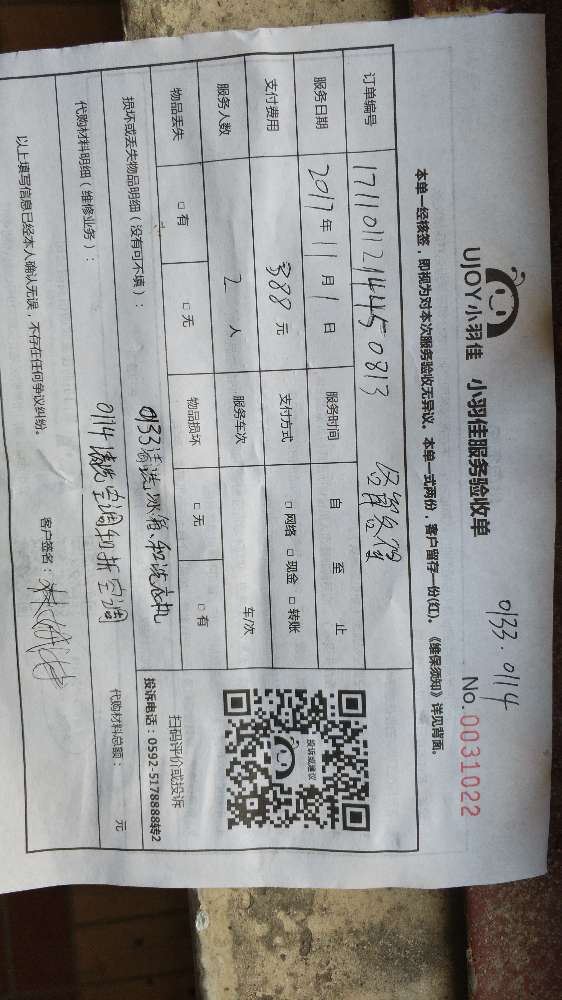 0133.0114
UJOY小羽佳 小羽佳服务验收单 No.0031022
本单一经核签，即视为对本次服务验收无异议。本单一式两份，客户留存一份(红)。《维保须知》详见背面。
订单编号 171101121444450813
服务日期 2017年11月1日 服务时间 自 至 止
支付费用 388元 支付方式 □网络 □现金 □转账
服务人数 2人 服务车次 车/次
物品丢失 □有 □无 物品损坏 □无 □有
损坏或丢失物品明细（没有可不填）： 0133清洗冰箱、和洗衣机
代购材料明细（维修业务）： 0114清洗空调和拆空调
代购材料总额： 元
投诉或建议
扫码评价或投诉
投诉电话：0592-5178888转2
以上填写信息已经本人确认无误，不存在任何争议纠纷。 客户签名：